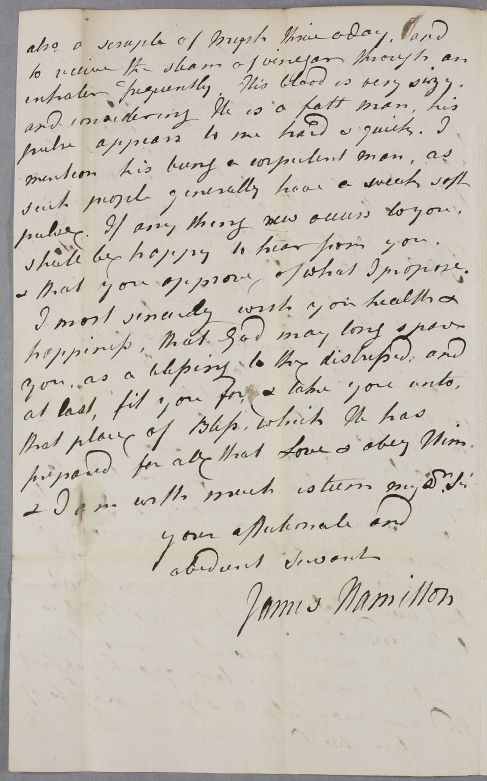 also a scruple of Myrrh thrice a day, and
to receive the steam of vinegar through an
inhaler frequently. His blood is very sizy.
and considering He is a fatt man, his
pulse appears to me hard & quick. I
mention his being a corpulent man, as
such people generally have a weak soft
pulse. If any thing new occurs to you,
shall be happy to hear from you.
& that you approve of what I propose.
I most sincerely wish you health &
happiness, that God may long spare
you, as a blessing to the distressed, and
at last, fit you for, & take you unto,
that place of Bliss, which He has
prepared for all that Love & obey Him
& I am with much esteem my Dr. Sir
your affectionate and
obedient servant
James Hamilton